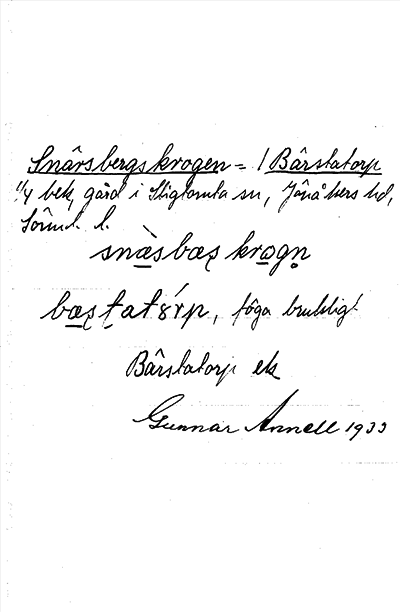 Snârsbergskrogen = / Bârstatorp
1/4 bek, gård i Stigtomta sn, Jönåkers hd,
Sörml. l.
snæ̀sbæş krogn̥
bæşt̥atórp, föga brukligt
Bârstatorp ek
Gunnar Annell 1933